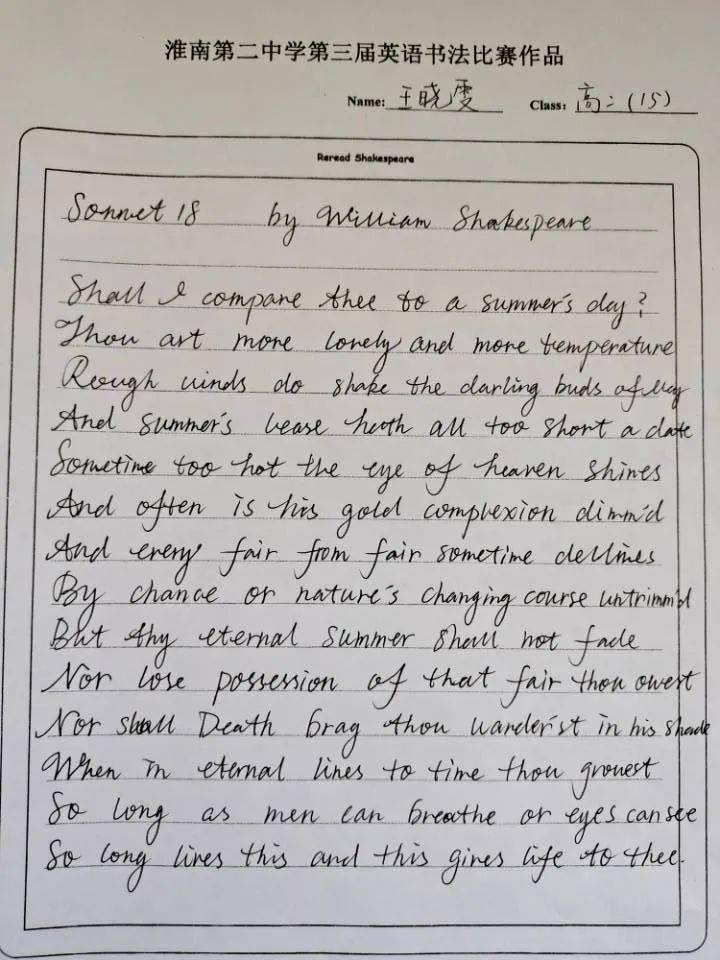 淮南第二中学第三届英语书法比赛作品
Name: 王晓雯 Class: 高二(15)
Reread Shakespeare
Sonnet 18 by William Shakespeare
Shall I compare thee to a summer's day?
Thou art more lovely and more temperature
Rough winds do shake the darling buds of May
And summer's lease hath all too short a date
Sometime too hot the eye of heaven shines
And often is his gold complexion dimm'd
And every fair from fair sometime declines
By chance or nature's changing course untrimm'd
But thy eternal summer shall not fade
Nor lose possession of that fair thou owest
Nor shall Death brag thou wander'st in his shade
When in eternal lines to time thou growest
So long as men can breathe or eyes can see
So long lives this and this gives life to thee.